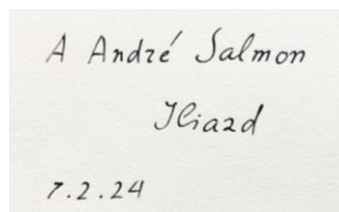 A André Salmon
Iliazd
7.2.24